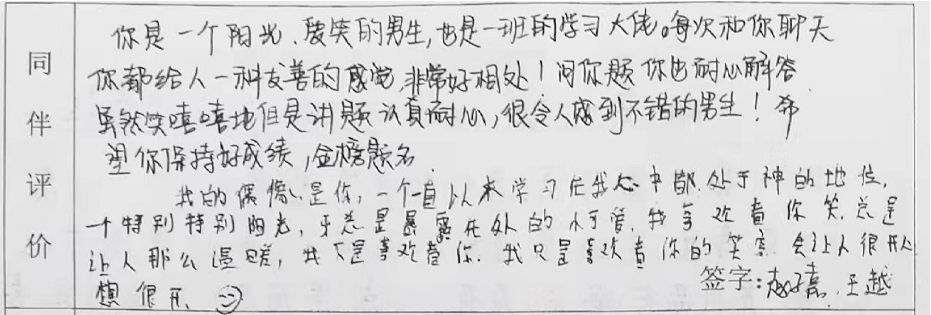 同伴评价
你是一个阳光、爱笑的男生，也是一班的学习大佬。每次和你聊天
你都给人一种友善的感觉，非常好相处！问你题你也耐心解答
虽然笑嘻嘻地但是讲题认真耐心，很令人感到不错的男生！希
望你保持好成绩，金榜题名
我的偶像是你，一个一直以来学习在我心中都处于神的地位，
一个特别特别阳光，手总是暴露在外的，我喜欢看你笑，总是
让人那么温暖，我只是喜欢看你。我只是喜欢看你的笑容 会让人很开心
想很开
签字：王越